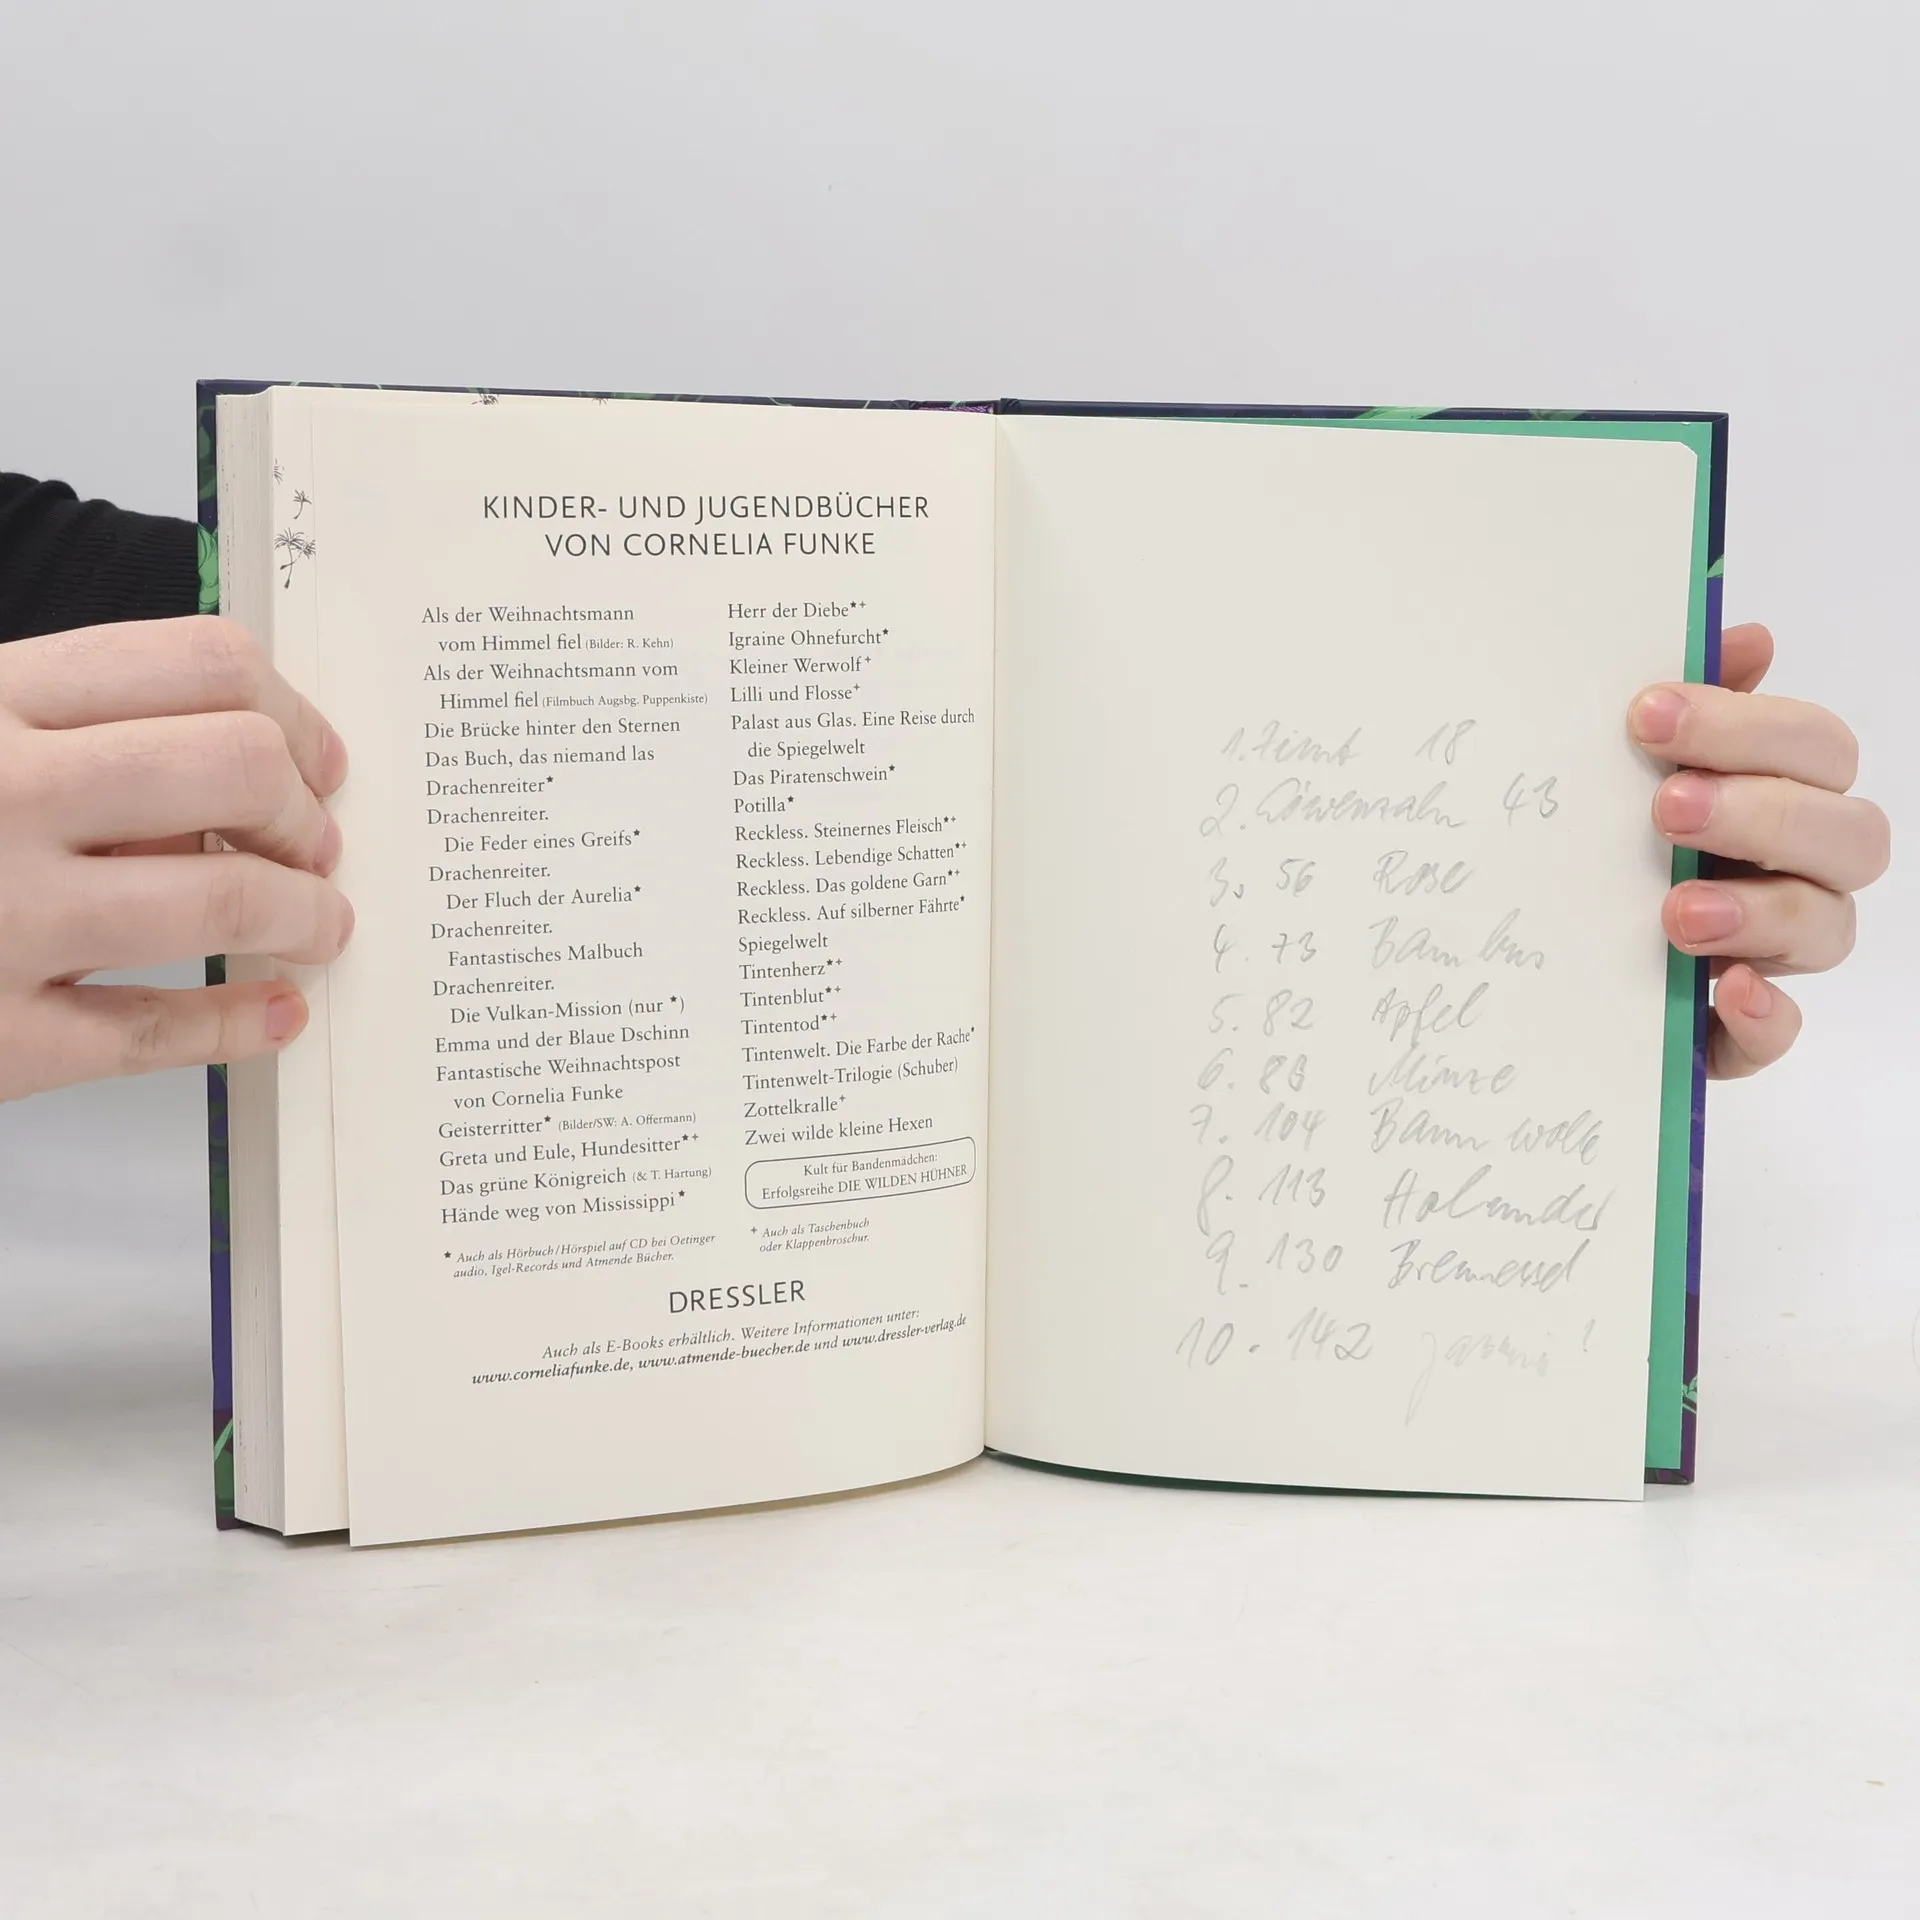 KINDER- UND JUGENDBÜCHER
VON CORNELIA FUNKE
Als der Weihnachtsmann
vom Himmel fiel (Bilder: R. Kehn)
Als der Weihnachtsmann vom
Himmel fiel (Filmbuch Augsbg. Puppenkiste)
Die Brücke hinter den Sternen
Das Buch, das niemand las
Drachenreiter★
Drachenreiter.
Die Feder eines Greifs★
Drachenreiter.
Der Fluch der Aurelia★
Drachenreiter.
Fantastisches Malbuch
Drachenreiter.
Die Vulkan-Mission (nur ★)
Emma und der Blaue Dschinn
Fantastische Weihnachtspost
von Cornelia Funke
Geisterritter★ (Bilder/SW: A. Offermann)
Greta und Eule, Hundesitter★+
Das grüne Königreich (& T. Hartung)
Hände weg von Mississippi★
★ Auch als Hörbuch/Hörspiel auf CD bei Oetinger
audio, Igel-Records und Atmende Bücher.
Herr der Diebe★+
Igraine Ohnefurcht★
Kleiner Werwolf+
Lilli und Flosse+
Palast aus Glas. Eine Reise durch
die Spiegelwelt
Das Piratenschwein★
Potilla★
Reckless. Steinernes Fleisch★+
Reckless. Lebendige Schatten★+
Reckless. Das goldene Garn★+
Reckless. Auf silberner Fährte★
Spiegelwelt
Tintenherz★+
Tintenblut★+
Tintentod★+
Tintenwelt. Die Farbe der Rache★
Tintenwelt-Trilogie (Schuber)
Zottelkralle+
Zwei wilde kleine Hexen
Kult für Bandenmädchen:
Erfolgsreihe DIE WILDEN HÜHNER
+ Auch als Taschenbuch
oder Klappenbroschur.
DRESSLER
Auch als E-Books erhältlich. Weitere Informationen unter:
www.corneliafunke.de, www.atmende-buecher.de und www.dressler-verlag.de
1. Zimt 18
2. Löwenzahn 43
3. 56 Rose
4. 73 Bambus
5. 82 Apfel
6. 88 Minze
7. 104 Baumwolle
8. 113 Holunder
9. 130 Brennessel
10. 142 Jasmin!